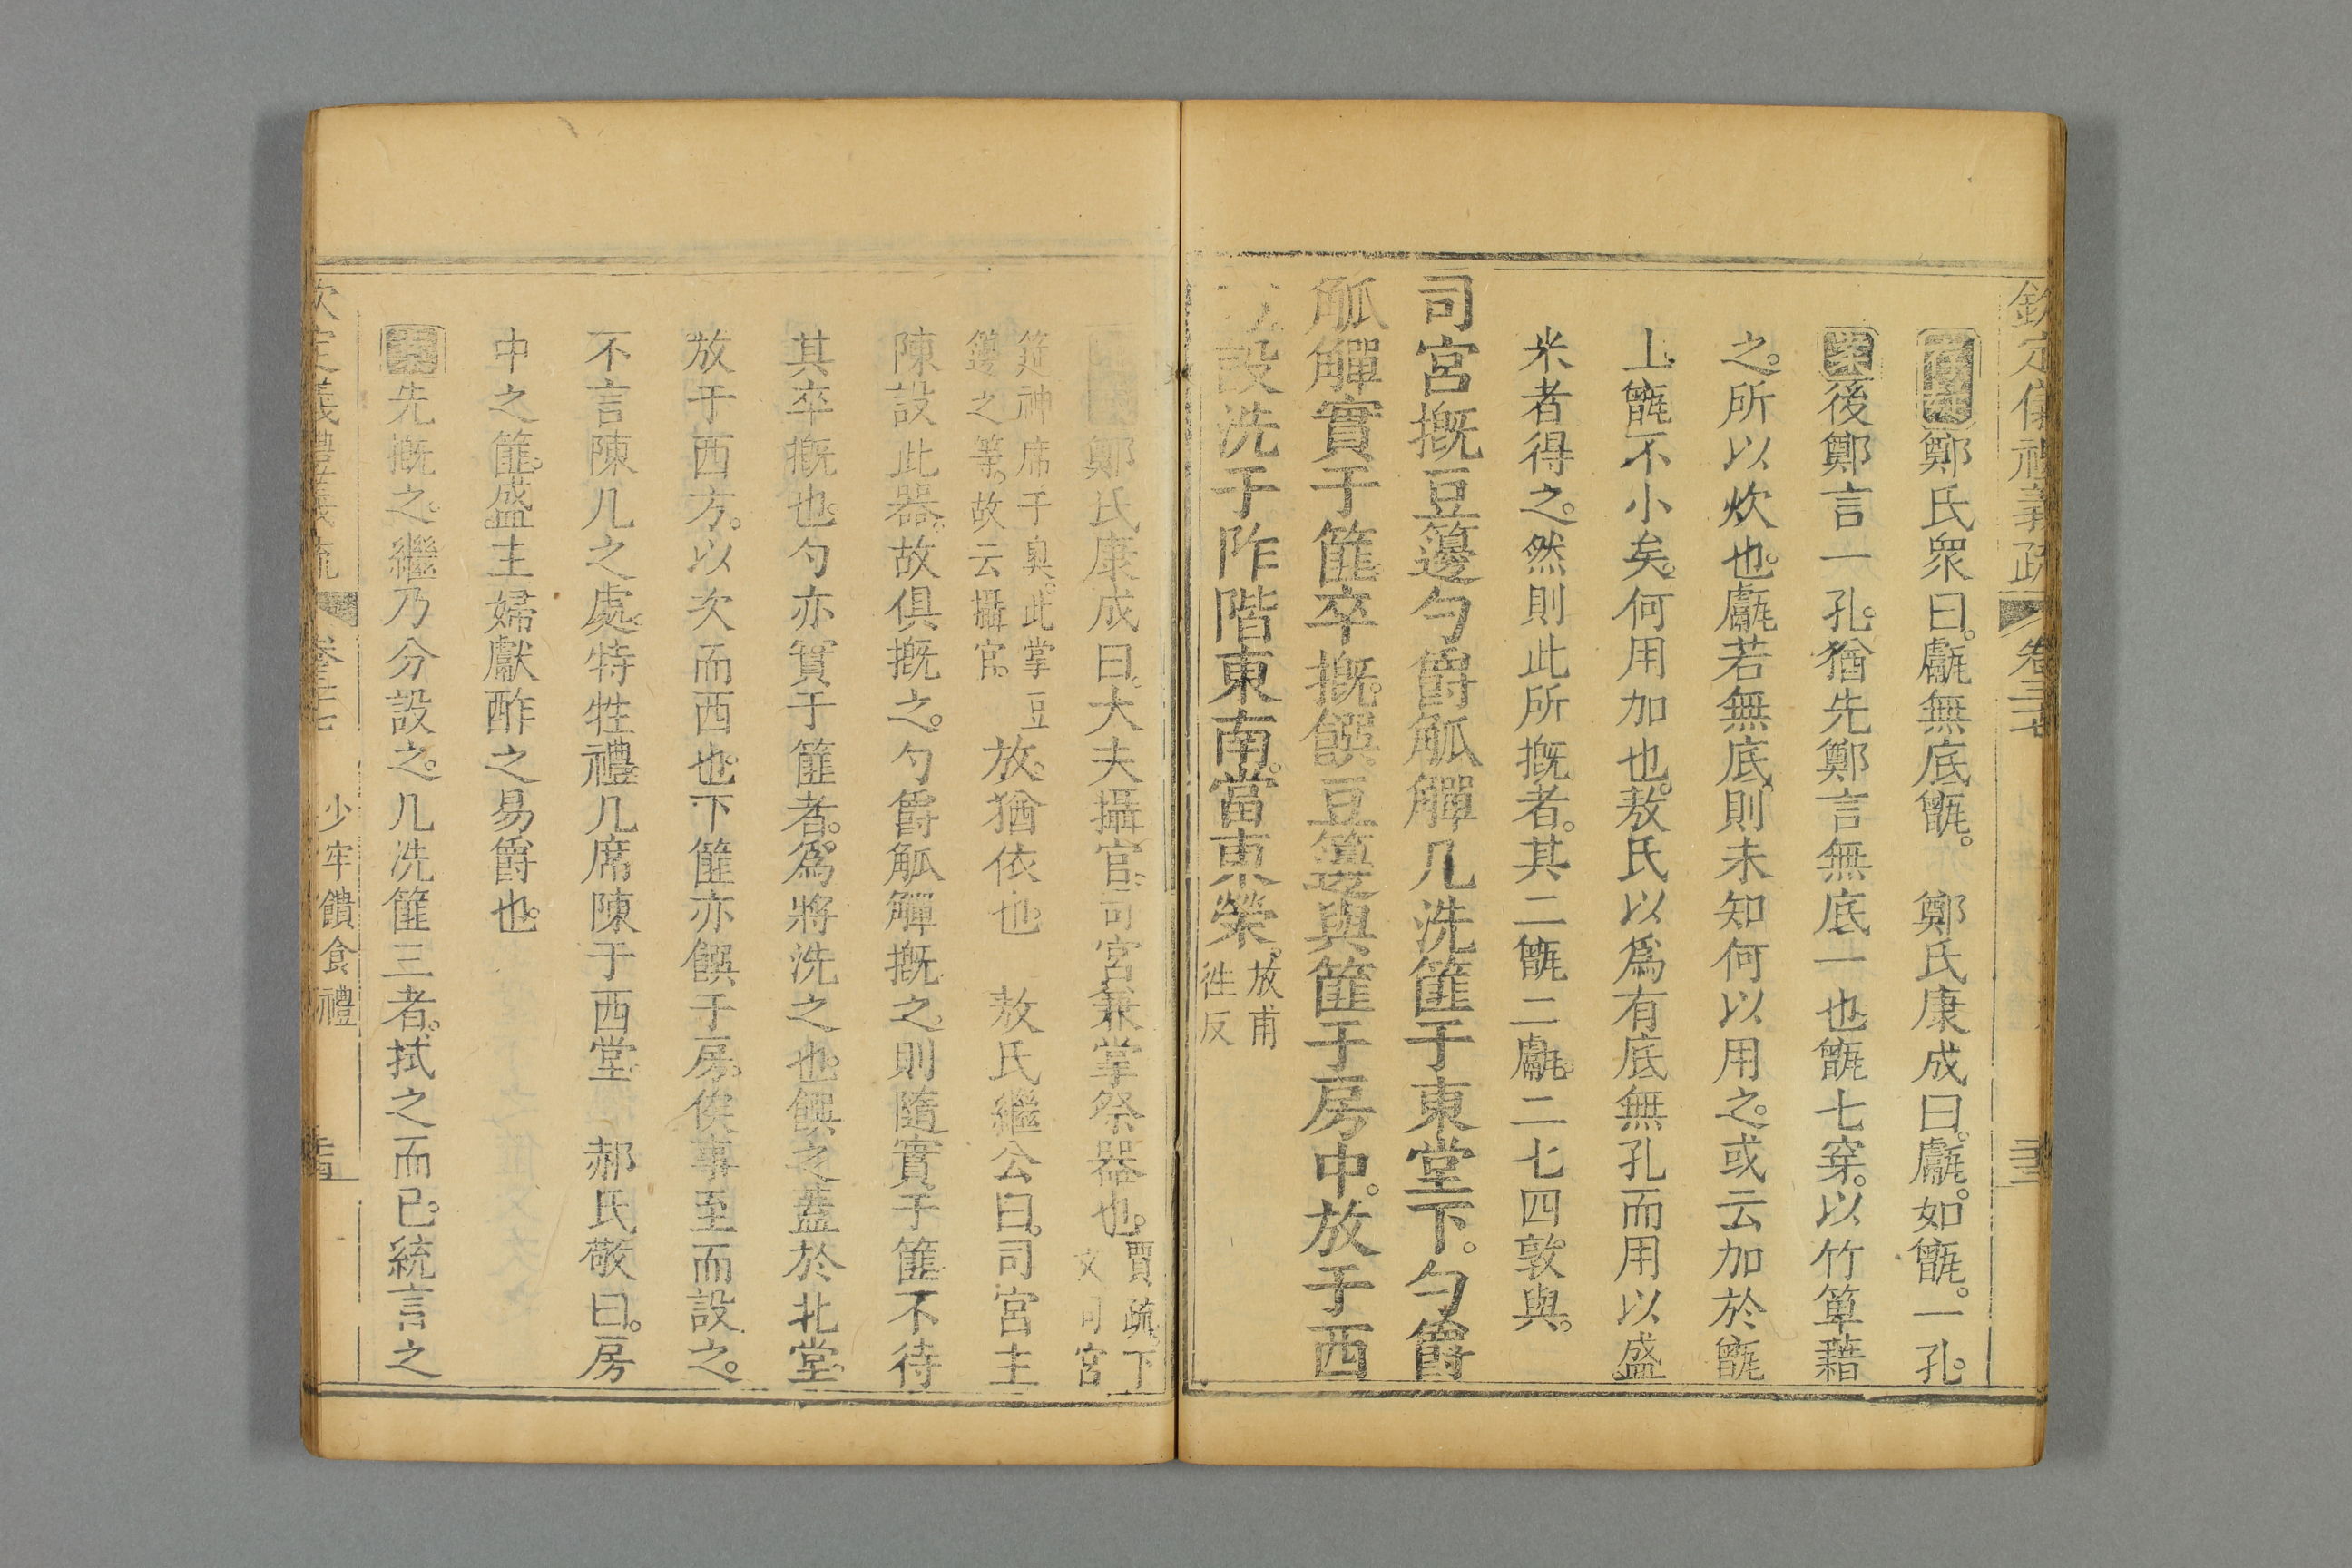 欽定儀禮義疏 卷三十七
鄭氏衆曰。甗無底甑。 鄭氏康成曰。甗。如甑。一孔。
案後鄭言一孔。猶先鄭言無底一也。甑七穿。以竹簞藉
之。所以炊也。甗若無底。則未知何以用之。或云加於甑
上。甑不小矣。何用加也。敖氏以爲有底無孔而用以盛
米者得之。然則此所摡者。其二甑二甗。二七四敦與。
司宮摡豆籩勺爵觚觶几洗篚于東堂下。勺爵
觚觶實于篚卒摡。饌豆籩與篚于房中。放于西
方。設洗于阼階東南。當東榮。放甫
徃反
鄭氏康成曰。大夫攝官。司宮兼掌祭器也。賈疏。下
文司宮
筵神席于奥。此掌豆
籩之等。故云攝官。放。猶依也。 敖氏繼公曰。司宮主
陳設此器。故俱摡之。勺爵觚觶摡之。則隨實于篚不待
其卒摡也。勺亦實于篚者。爲將洗之也。饌之蓋於北堂。
放于西方。以次而西也。下篚亦饌于房。俟事至而設之。
不言陳几之處。特牲禮。几席陳于西堂。 郝氏敬曰。房
中之篚。盛主婦獻酢之易爵也。
案先摡之。繼乃分設之。几洗篚三者。拭之而已。統言之
欽定儀禮義疏 卷三十七 少牢饋食禮